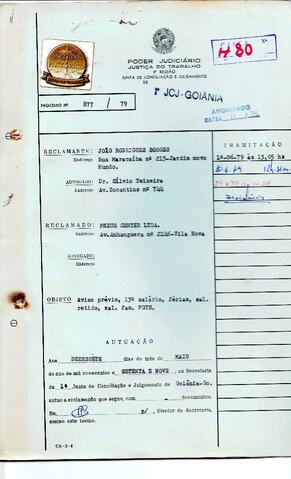 PODER JUDICIÁRIO
JUSTIÇA DO TRABALHO
3ª REGIÃO
JUNTA DE CONCILIAÇÃO E JULGAMENTO
DE
1ª JCJ-GOIÂNIA
PROCESSO Nº 877 / 79
ARQUIVADO
RECLAMANTE: JOÃO RODRIGUES BORGES
Endereço Rua Maracaíba nº 213-Jardim novo
Mundo.
ADVOGADO: Dr. Sílvio Teixeira
Endereço Av. Tocantins nº 744
RECLAMADO: PNEUS CENTER LTDA.
Endereço Av. Anhanguera nº 2146-Vila Nova
ADVOGADO:
Endereço
OBJETO Aviso prévio, 13º salário, férias, sal.
retido, sal. fam. FGTS.
TRAMITAÇÃO
1º-06-79 às 13,05 hs
AUTUAÇÃO
Aos DEZESSETE dias do mês de MAIO
do ano de mil novecentos e SETENTA E NOVE, na Secretaria
da 1ª Junta de Conciliação e Julgamento de Goiânia-Go.
autuo a reclamação que segue, com documentos.
Eu, p/ Diretor da Secretaria,
assino este termo.